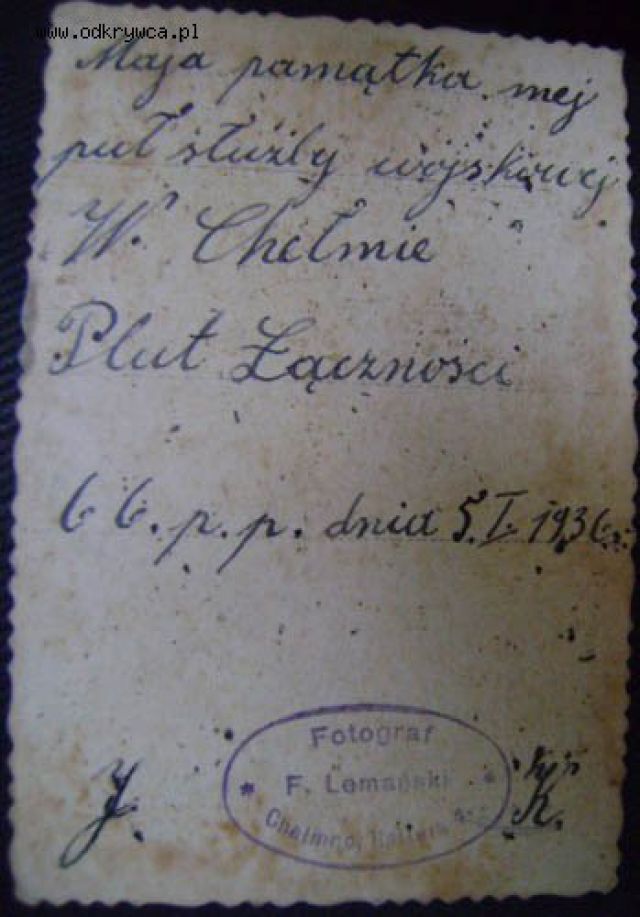 www.odkrywca.pl
Maja pamątka mej
puł służby wojskowej
W. Chełmie
Plut Łączności
66. p. p. dnia 5. I. 1936 r.
Fotograf
F. Lemański
Chełmno,
J. K.